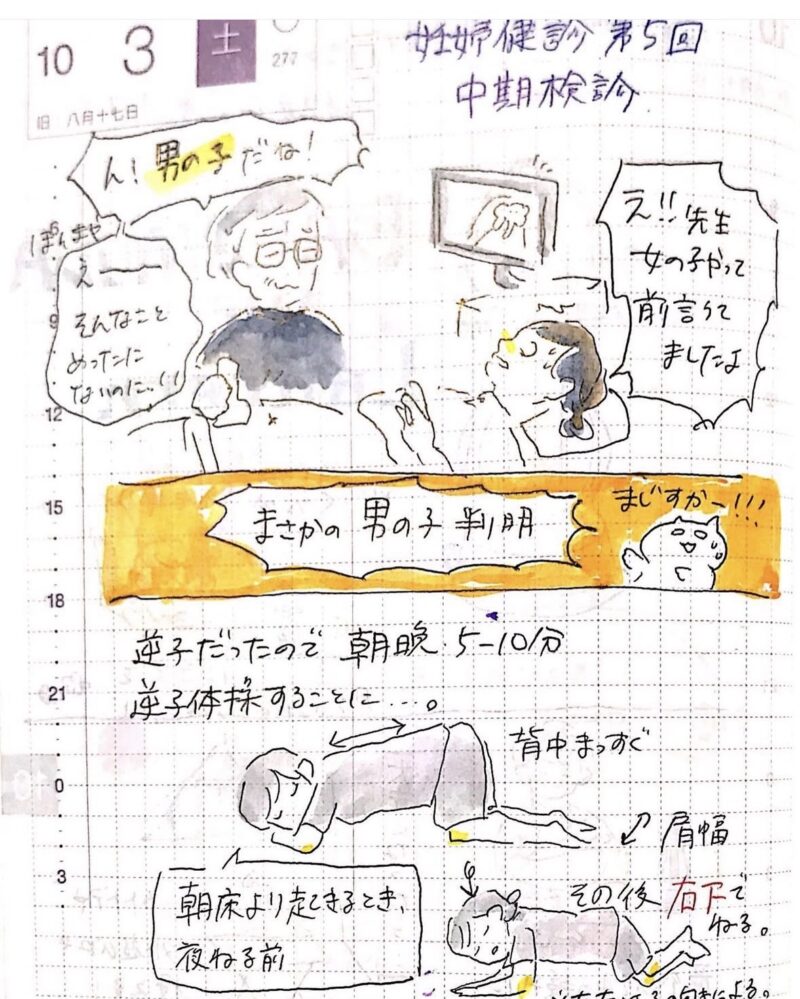 10 3 土
277
旧 八月十七日
妊婦健診 第5回
中期検診
ん! 男の子だね!
ほんまや
えーーー
そんなこと
めったに
ないのに..!!
え!! 先生
女の子やって
前言うて
ましたよ
6
9
12
15
18
21
0
3
まさかの 男の子 判明
まじすかー!!!
逆子だったので 朝晩 5-10分
逆子体操することに…。
背中まっすぐ
肩幅
朝床より起きるとき、
夜ねる前
その後 右下で
ねる。